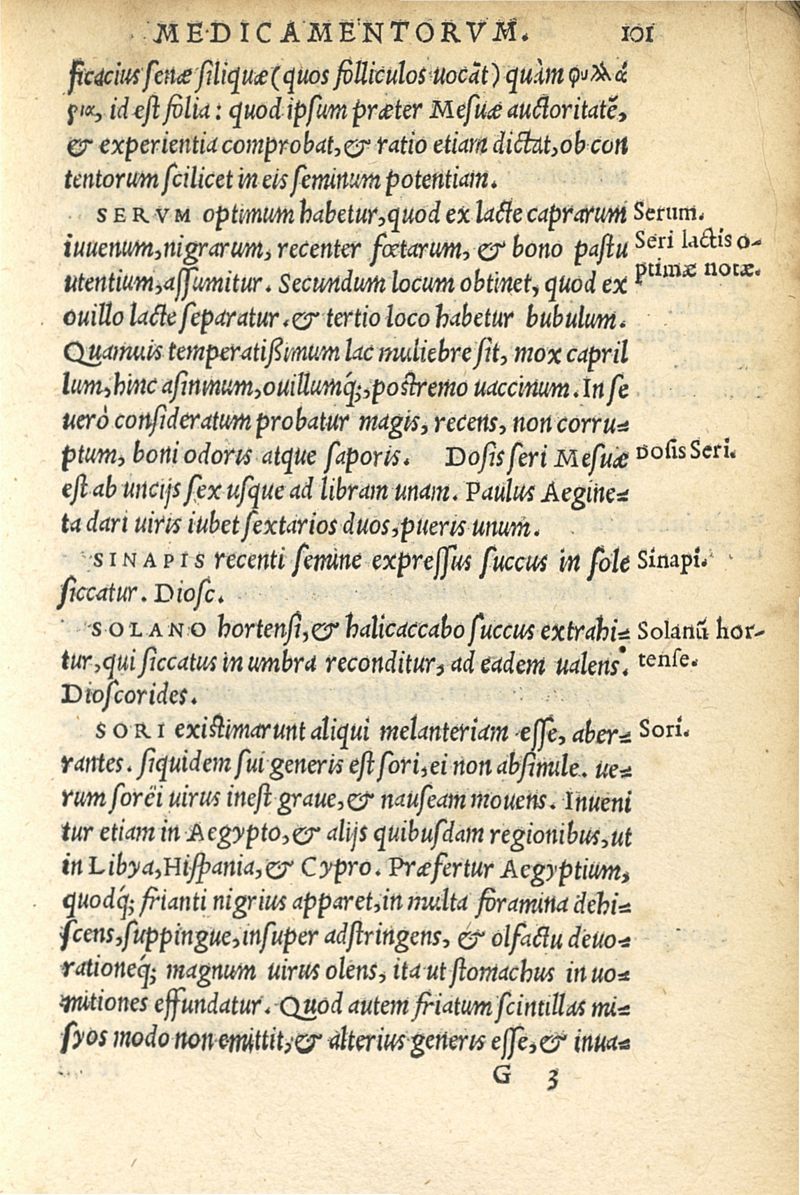 MEDICAMENTORVM. 101
ficacius senæ siliquæ (quos folliculos uocāt) quàm φυλλά
ρια, id est folia: quod ipsum præter Mesuæ auctoritatē,
& experientia comprobat, & ratio etiam dictat, ob con
tentorum scilicet in eis seminum potentiam.
SERVM optimum habetur, quod ex lacte caprarum Serum.
iuuenum, nigrarum, recenter fœtarum, & bono pastu Seri lactis o-
utentium, assumitur. Secundum locum obtinet, quod ex ptimæ notæ.
ouillo lacte separatur. & tertio loco habetur bubulum.
Quamuis temperatißimum lac muliebre sit, mox capril
lum, hinc asininum, ouillumq́;, postremo uaccinum. In se
uerò consideratum probatur magis, recens, non corru-
ptum, boni odoris atque saporis. Dosis seri Mesuæ Dosis Seri.
est ab uncijs sex usque ad libram unam. Paulus Aegine-
ta dari uiris iubet sextarios duos, pueris unum.
SINAPIS recenti semine expressus succus in sole Sinapi.
siccatur. Diosc.
SOLANO hortensi, & halicaccabo succus extrahi- Solanū hor-
tur, qui siccatus in umbra reconditur, ad eadem ualens. tense.
Dioscorides.
SORI existimarunt aliqui melanteriam esse, aber- Sori.
rantes. siquidem sui generis est sori, ei non absimile. ue-
rum sorëi uirus inest graue, & nauseam mouens. Inueni
tur etiam in Aegypto, & alijs quibusdam regionibus, ut
in Libya, Hispania, & Cypro. Præfertur Aegyptium,
quodq́; frianti nigrius apparet, in multa foramina dehi-
scens, suppingue, insuper adstringens, & olfactu deuo-
rationeq́; magnum uirus olens, ita ut stomachus in uo-
mitiones effundatur. Quod autem friatum scintillas mi-
syos modo non emittit, & alterius generis esse, & inua-
G 3